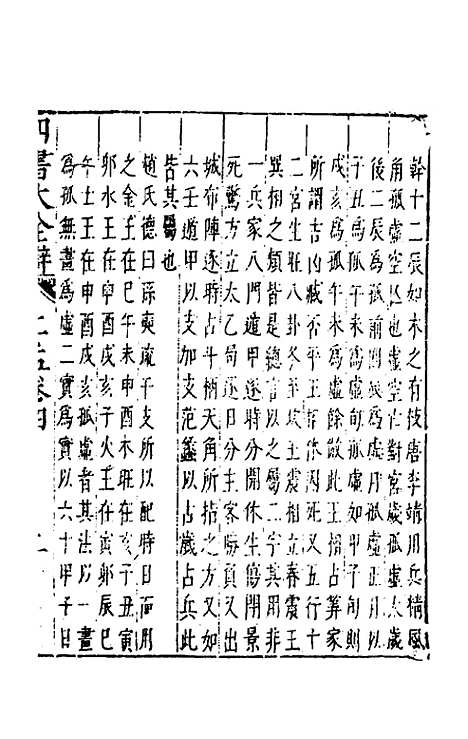 幹十二辰如木之有枝唐李靖用兵精風
角孤虛空亾也虛空亡對宮歲孤虛太歲
後二辰為孤前四辰為虛月孤虛正月以
子丑為孤午未為虛旬孤虛如甲子旬則
戌亥為孤午未為虛餘倣此王相占算家
所謂吉凶臧否平王相休囚死又五行十
二宮生旺八卦冬至坎王震相立春震王
異相之類皆是總言以之屬二字其用非
一兵家八門遁甲逐時分開休生傷開景
死驚方立太乙局逐日分主客勝負又出
城布陣逐時占斗柄天角所指之方又如
六壬遁甲以支加支范蠡以占歲占兵此
皆其屬也
趙氏德曰孫奭疏干支所以配時日而用
之金王在巳午未申酉木旺在亥子丑寅
卯水王在申酉戌亥子火王在寅卯辰巳
午土王在申酉戌亥孤虛者其法以一畫
為孤無畫為虛二實為實以六十甲子日
四書大全辯 孟卷四